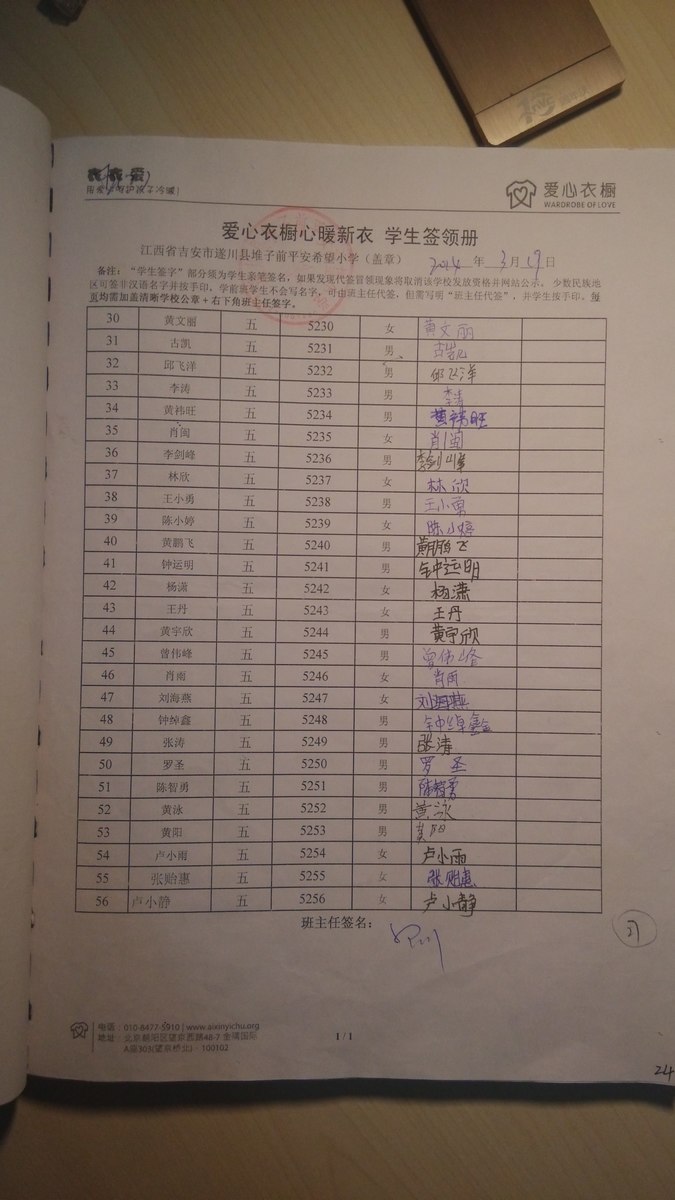 爱心衣橱
WARDROBE OF LOVE
爱心衣橱心暖新衣 学生签领册
江西省吉安市遂川县堆子前平安希望小学（盖章） 2014 年 3 月 19 日
备注：“学生签字”部分须为学生亲笔签名，如果发现代签冒领现象将取消该学校发放资格并网站公示。少数民族地
区可签非汉语名字并按手印，学前班学生不会写名字，可由班主任代签，但需写明“班主任代签”，并学生按手印。每
页均需加盖清晰学校公章+右下角班主任签字。
30 黄文丽 五 5230 女 黄文丽
31 古凯 五 5231 男 古凯
32 邱飞洋 五 5232 男 邱飞洋
33 李涛 五 5233 男 李清
34 黄祎旺 五 5234 男 黄祎旺
35 肖闽 五 5235 女 肖闽
36 李剑峰 五 5236 男 李剑峰
37 林欣 五 5237 女 林欣
38 王小勇 五 5238 男 王小勇
39 陈小婷 五 5239 女 陈小婷
40 黄鹏飞 五 5240 男 黄鹏飞
41 钟运明 五 5241 男 钟运明
42 杨潇 五 5242 女 杨潇
43 王丹 五 5243 女 王丹
44 黄宇欣 五 5244 男 黄宇欣
45 曾伟峰 五 5245 男 曾伟峰
46 肖雨 五 5246 女 肖雨
47 刘海燕 五 5247 女 刘海燕
48 钟绰鑫 五 5248 男 钟绰鑫
49 张涛 五 5249 男 张清
50 罗圣 五 5250 男 罗圣
51 陈智勇 五 5251 男 陈智勇
52 黄泳 五 5252 男 黄泳
53 黄阳 五 5253 男 黄阳
54 卢小雨 五 5254 女 卢小雨
55 张贻惠 五 5255 女 张贻惠
56 卢小静 五 5256 女 卢小静
班主任签名：
27
电话：010-8477-5910 | www.aixinyichu.org
地址：北京朝阳区望京西路48-7 金隅国际
A座303(望京桥北) · 100102
1 / 1
24